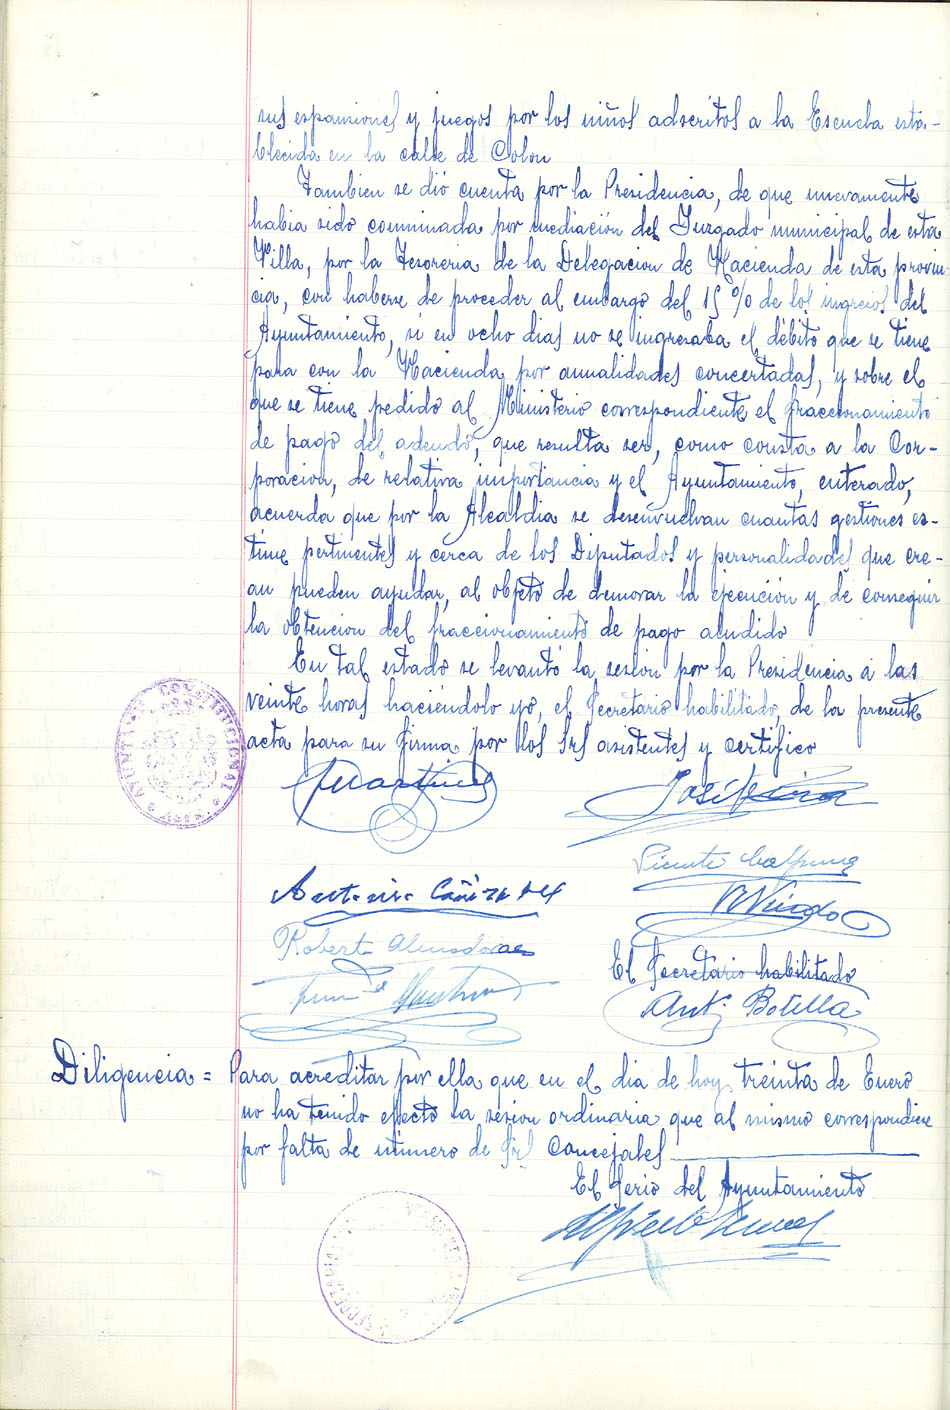 sus expansiones y juegos por los niños adscritos a la Escuela esta-
blecida en la calle de Colon
Tambien se dió cuenta por la Presidencia, de que nuevamente
habia sido conminada por mediación del Juzgado municipal de esta
Villa, por la Tesoreria de la Delegacion de Hacienda de esta provin
cia, con haberse de proceder al embargo del 15 % de los ingresos del
Ayuntamiento, si en ocho dias no se ingresaba el débito que se tiene
para con la Hacienda por anualidades concertadas, y sobre el
que se tiene pedido al Ministerio correspondiente el fraccionamiento
de pago del adeudo, que resulta ser, como consta a la Cor-
poracion, de relativa importancia y el Ayuntamiento, enterado,
acuerda que por la Alcaldia se desenvuelvan cuantas gestiones es-
time pertinentes y cerca de los Diputados y personalidades que cre-
an pueden ayudar, al objeto de demorar la ejecución y de conseguir
la obtencion del fraccionamiento de pago aludido
En tal estado se levantó la sesión por la Presidencia a las
veinte horas haciéndolo yo, el Secretario habilitado, de la presente
acta para su firma por los Srs asistentes y certifico
AYUNTAMIENTO CONSTITUCIONAL
Martinez
José
Vicente
Antonio Cañizares
Roberto
El Secretario habilitado
Antº Botella
Diligencia = Para acreditar por ella que en el dia de hoy treinta de Enero
no ha tenido efecto la sesion ordinaria que al mismo correspondiere
por falta de número de Srs Concejales
El Serio del Ayuntamiento
SECRETARIA
Alfredo